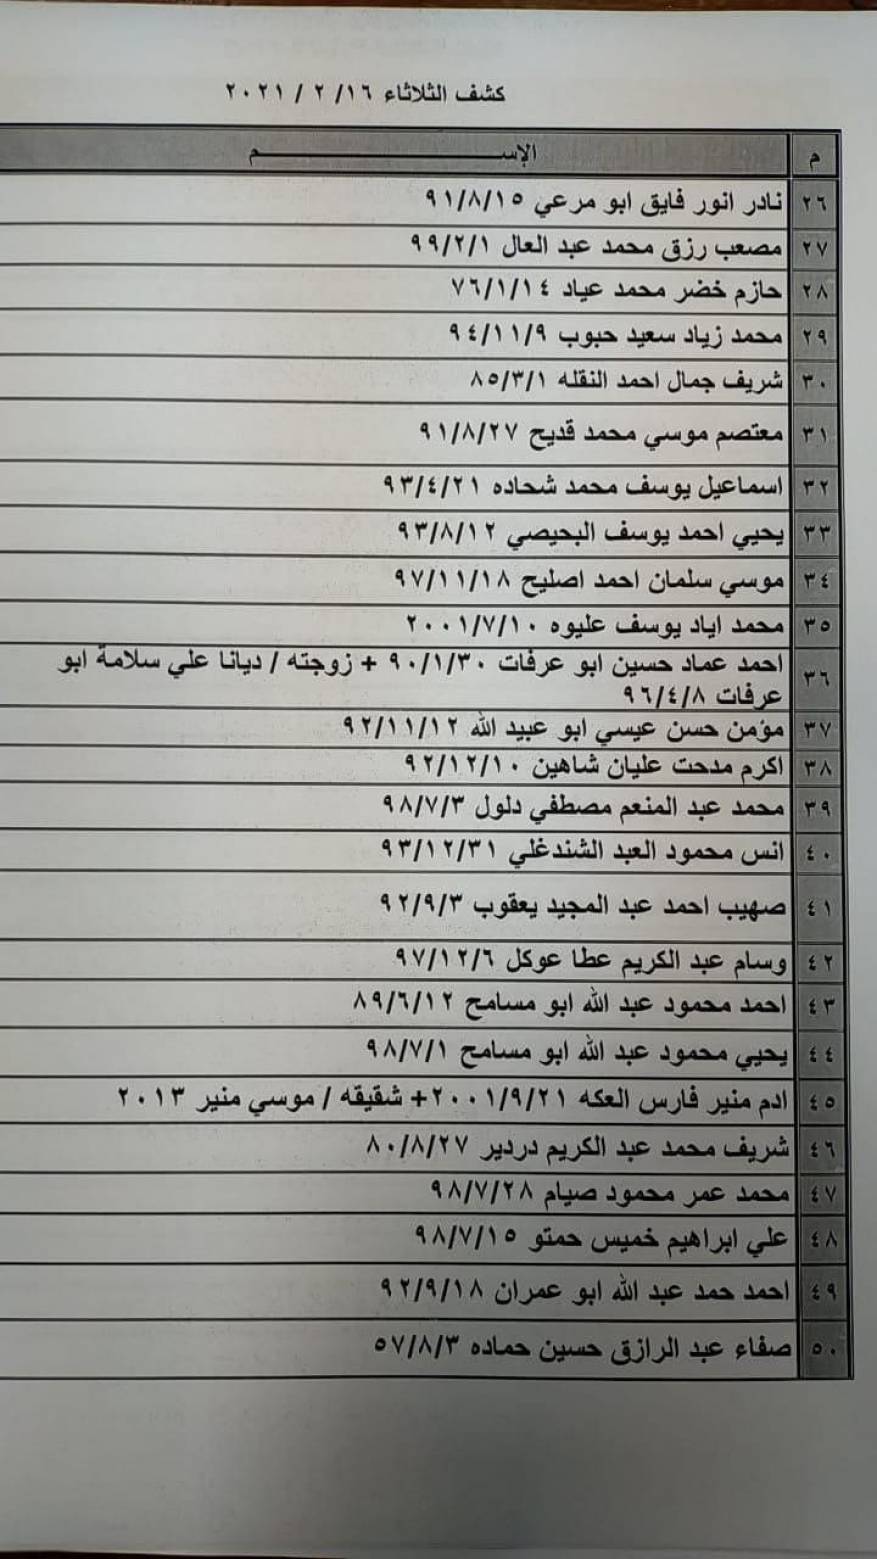 كشف الثلاثاء ١٦/ ٢ / ٢٠٢١
م الإســـــــــــــــــــم
٢٦ نادر انور فايق ابو مرعي ٩١/٨/١٥
٢٧ مصعب رزق محمد عبد العال ٩٩/٢/١
٢٨ حازم خضر محمد عياد ٧٦/١/١٤
٢٩ محمد زياد سعيد حبوب ٩٤/١١/٩
٣٠ شريف جمال احمد النقله ٨٥/٣/١
٣١ معتصم موسي محمد قديح ٩١/٨/٢٧
٣٢ اسماعيل يوسف محمد شحاده ٩٣/٤/٢١
٣٣ يحيي احمد يوسف البحيصي ٩٣/٨/١٢
٣٤ موسي سلمان احمد اصليح ٩٧/١١/١٨
٣٥ محمد اياد يوسف عليوه ٢٠٠١/٧/١٠
٣٦ احمد عماد حسين ابو عرفات ٩٠/١/٣٠ + زوجته / ديانا علي سلامة ابو
عرفات ٩٦/٤/٨
٣٧ مؤمن حسن عيسي ابو عبيد الله ٩٢/١١/١٢
٣٨ اكرم مدحت عليان شاهين ٩٢/١٢/١٠
٣٩ محمد عبد المنعم مصطفي دلول ٩٨/٧/٣
٤٠ انس محمود العبد الشندغلي ٩٣/١٢/٣١
٤١ صهيب احمد عبد المجيد يعقوب ٩٢/٩/٣
٤٢ وسام عبد الكريم عطا عوكل ٩٧/١٢/٦
٤٣ احمد محمود عبد الله ابو مسامح ٨٩/٦/١٢
٤٤ يحيي محمود عبد الله ابو مسامح ٩٨/٧/١
٤٥ ادم منير فارس العكه ٢٠٠١/٩/٢١+ شقيقه / موسي منير ٢٠١٣
٤٦ شريف محمد عبد الكريم دردير ٨٠/٨/٢٧
٤٧ محمد عمر محمود صيام ٩٨/٧/٢٨
٤٨ علي ابراهيم خميس حمتو ٩٨/٧/١٥
٤٩ احمد حمد عبد الله ابو عمران ٩٢/٩/١٨
٥٠ صفاء عبد الرازق حسين حماده ٥٧/٨/٣